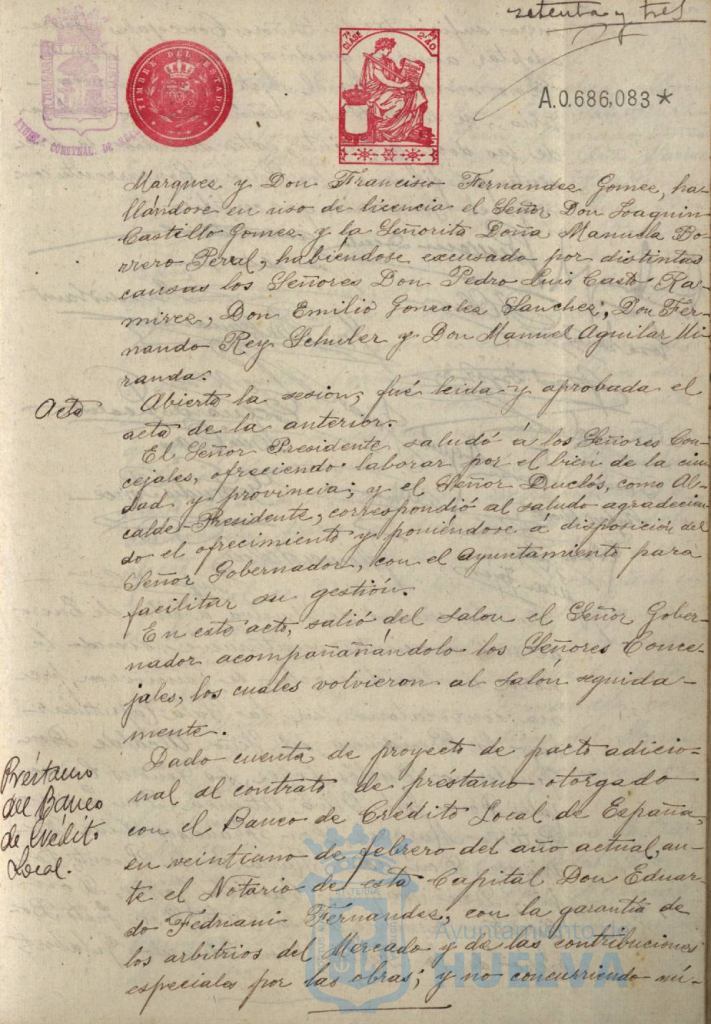 setenta y tres
TIMBRE DEL ESTADO
7ª CLASE
2'40
A.0.686,083*
Marquez y Don Francisco Fernandez Gomez, ha-
llándose en uso de licencia el Señor Don Joaquin
Castillo Gomez y la Señorita Doña Manuela Bo-
rrero Peral, habiéndose excusado por distintas
causas los Señores Don Pedro Luis Casto Ra-
mirez, Don Emilio Gonzalez Sanchez, Don Fer-
nando Rey Schuler y Don Manuel Aguilar Mi-
randa.
Acta
Abierta la sesion, fué leida y aprobada el
acta de la anterior.
El Señor Presidente saludó á los Señores Con-
cejales, ofreciendo laborar por el bien de la ciu-
dad y provincia; y el Señor Duclós, como Al-
calde-Presidente, correspondió al saludo agradecien-
do el ofrecimiento y poniéndose á disposición del
Señor Gobernador, con el Ayuntamiento para
facilitar su gestión.
En este acto, salió del salon el Señor Gober-
nador acompañañándolo los Señores Conce-
jales, los cuales volvieron al salón seguida-
mente.
Préstamo
del Banco
de Crédito
Local.
Dado cuenta de proyecto de pacto adicio-
nal al contrato de préstamo otorgado
con el Banco de Crédito Local de España,
en veintiano de febrero del año actual, an-
te el Notario de esta Capital Don Eduar-
do Fedriani Fernandez, con la garantía de
los arbitrios del Mercado y de las contribuciones
especiales por las obras; y no concurriendo nú-
Ayuntamiento de
HUELVA